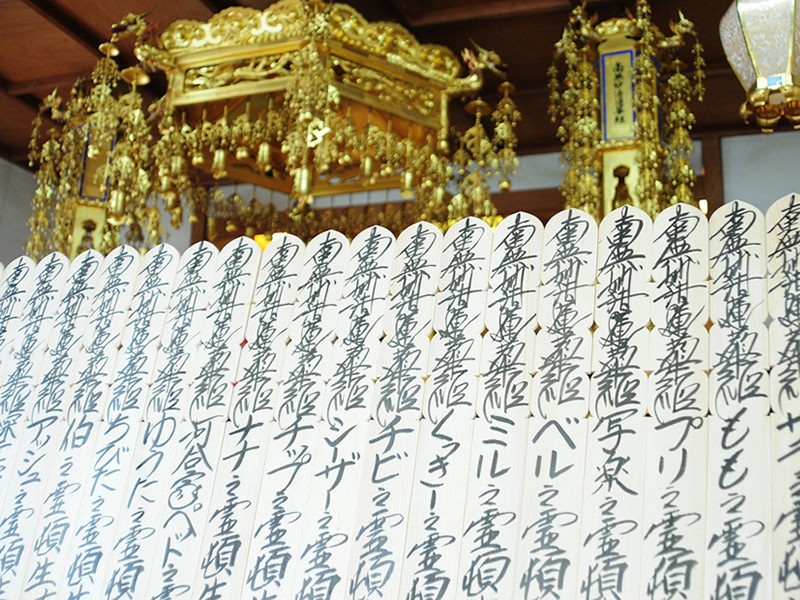 南無妙法蓮華経
南無妙法蓮華経
南無妙法蓮華経もも之霊頓
南無妙法蓮華経プリ之霊頓
南無妙法蓮華経写楽之霊頓
南無妙法蓮華経ベル之霊頓
南無妙法蓮華経ミル之霊頓
南無妙法蓮華経くっきー之霊頓
南無妙法蓮華経チビ之霊頓
南無妙法蓮華経シーザー之霊頓
南無妙法蓮華経チップ之霊頓
南無妙法蓮華経ナナ之霊頓生
南無妙法蓮華経谷家ペット之霊
南無妙法蓮華経ゆうた之霊頓生
南無妙法蓮華経ちびた之霊頓生
南無妙法蓮華経伯之霊頓生
南無妙法蓮華経アッシュ之霊頓生
南無妙法蓮華経